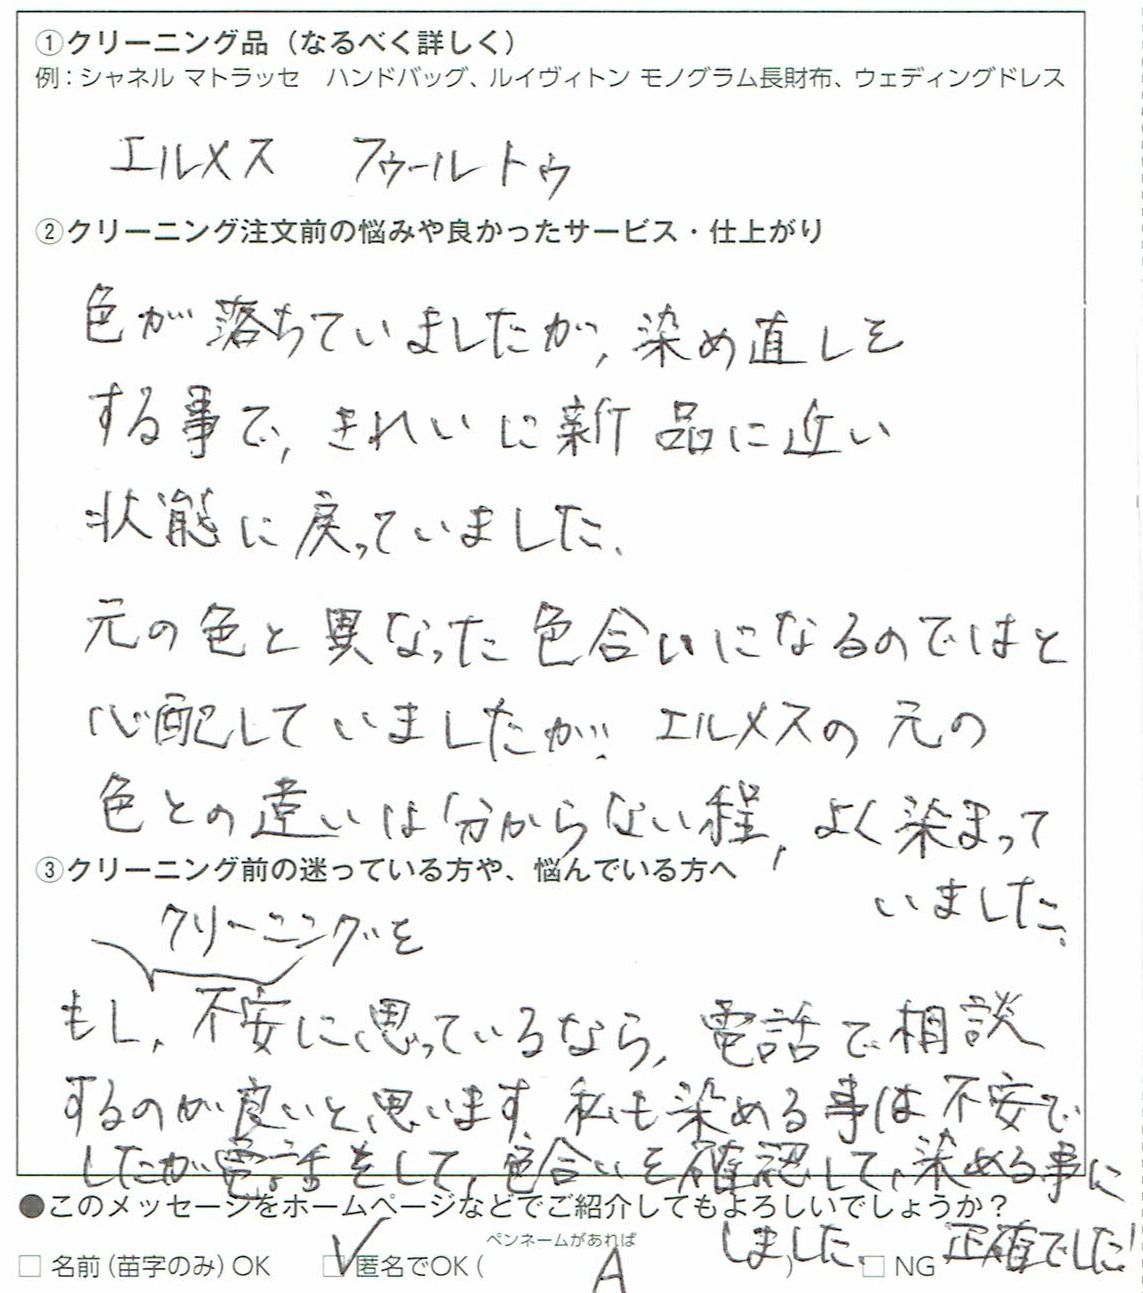 ①クリーニング品（なるべく詳しく）
例：シャネル マトラッセ　ハンドバッグ、ルイヴィトン モノグラム長財布、ウェディングドレス
エルメス　フゥールトゥ
②クリーニング注文前の悩みや良かったサービス・仕上がり
色が落ちていましたが、染め直しを
する事で、きれいに新品に近い
状態に戻っていました、
元の色と異なった色合いになるのではと
心配していましたが、エルメスの元の
色との違いは分からない程、よく染まって
いました。
③クリーニング前の迷っている方や、悩んでいる方へ
クリーニングを
もし、不安に思っているなら、電話で相談
するのが良いと思います。私も染める事は不安で
したが電話をして、色合いを確認して、染める事に
しました。正確でした!
●このメッセージをホームページなどでご紹介してもよろしいでしょうか？
ペンネームがあれば
□ 名前（苗字のみ）OK　☑ 匿名でOK（　A　）　□ NG